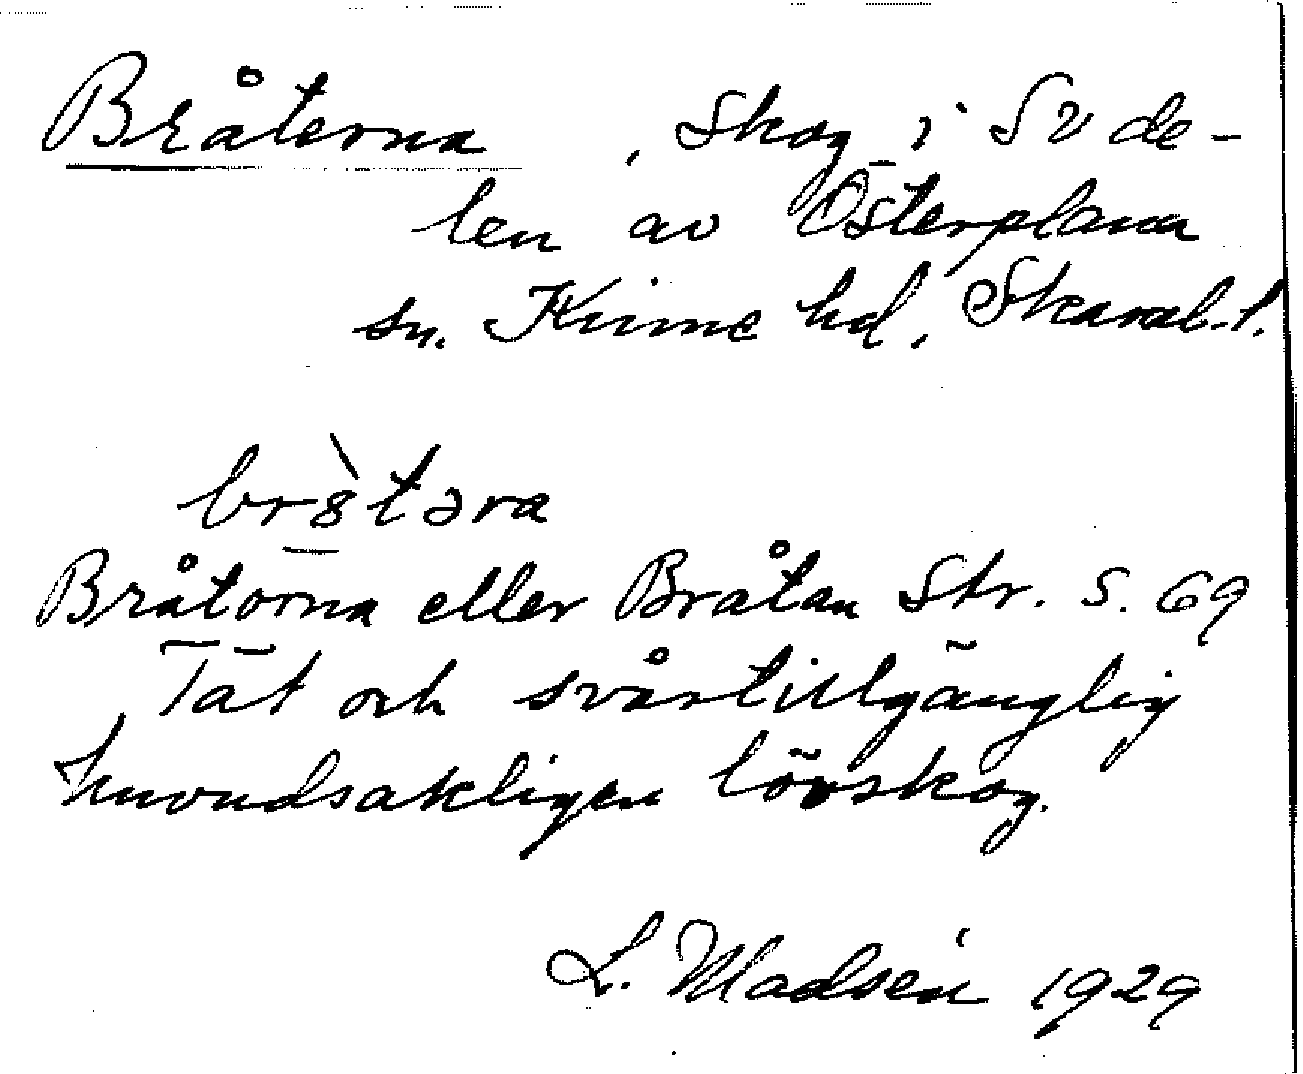 Bråterna, skog i SV de-
len av Österplana
sn. Kinne hd, Skarab. l.
br8̀təra
Bråtorna eller Bråtan Str. S. 69
Tät och svårtillgänglig
huvudsakligen lövskog.
L. Madsén 1929